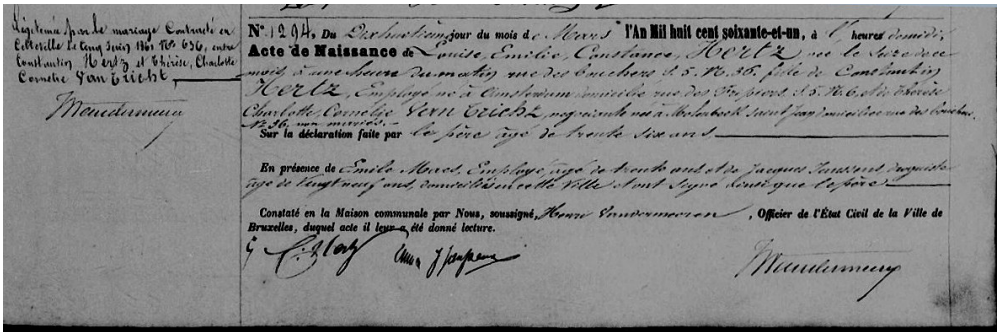 Légitimée par le mariage Contracté en
cette ville le cinq Juin 1861 No 636, entre
Constantin Hertz et Thérèse, Charlotte
Cornélie Van Tricht,
Vandermeeren
No 1294. Du Dixhuitième jour du mois de Mars l'An Mil huit cent soixante-et-un, à heures
Acte de Naissance de Louise, Emilie, Constance, Hertz, née le Seize de ce
mois, à une heure du matin rue des bouchers S. 5. No 36, fille de Constantin
Hertz, Employé, né à Amsterdam domicilié rue des Fripiers S. 5. No 6, et de Thérèse
Charlotte, Cornélie Van Tricht, négociante née à Molenbeek Saint Jean domiciliée rue des bouchers
No 36 non mariés.
Sur la déclaration faite par le père âgé de trente six ans.
En présence de Emile Maes, Employé, âgé de trente ans et de Jacques Janssens, droguiste
âgé de vingt neuf ans, domiciliés en cette Ville et ont signé ainsi que le père.
Constaté en la Maison communale par Nous, soussigné, Henri Vandermeeren, Officier de l'État Civil de la Ville de
Bruxelles, duquel acte il leur a été donné lecture.
C. Hertz J Janssens
Vandermeeren